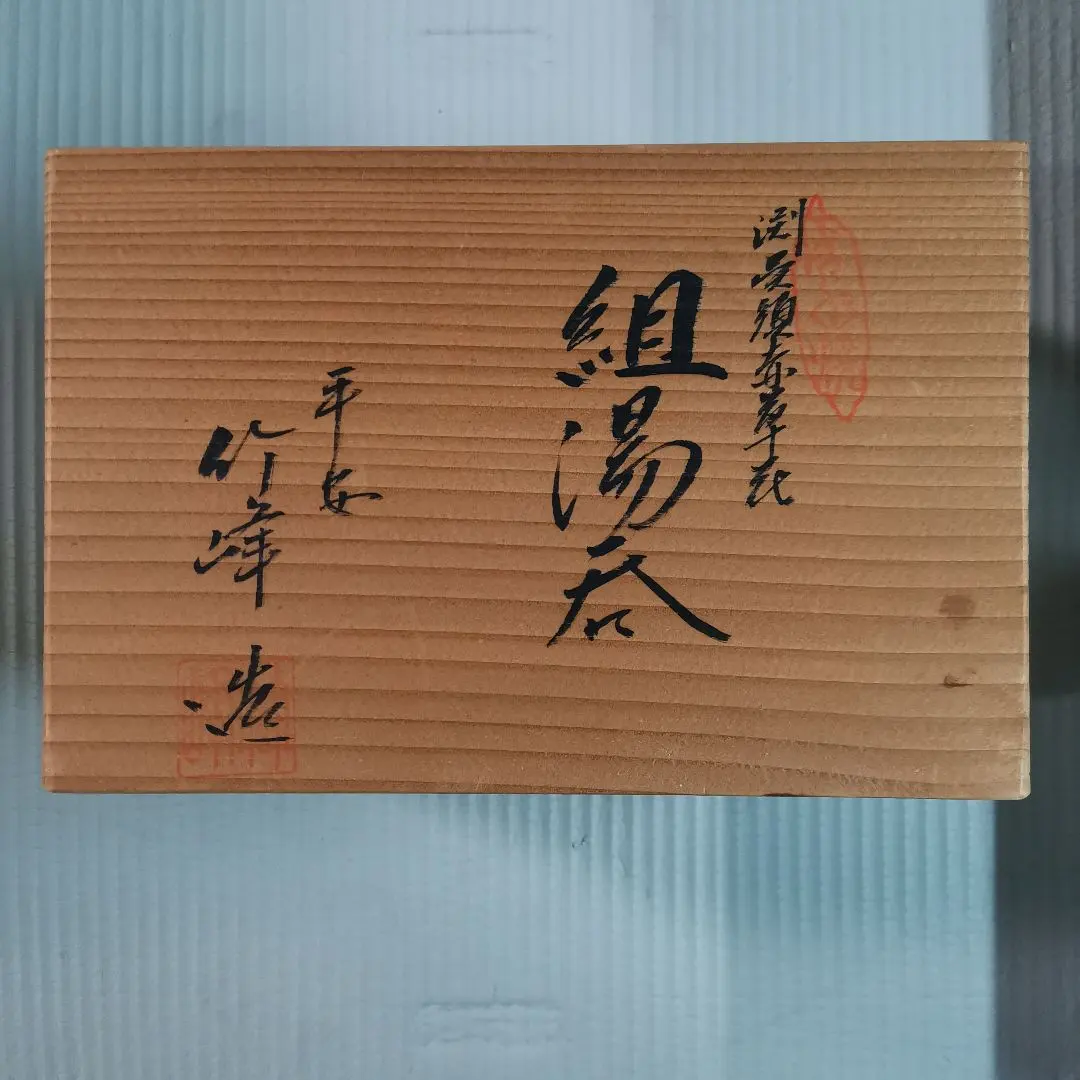 渕呉須赤草花
組湯呑
平安
竹峰
造